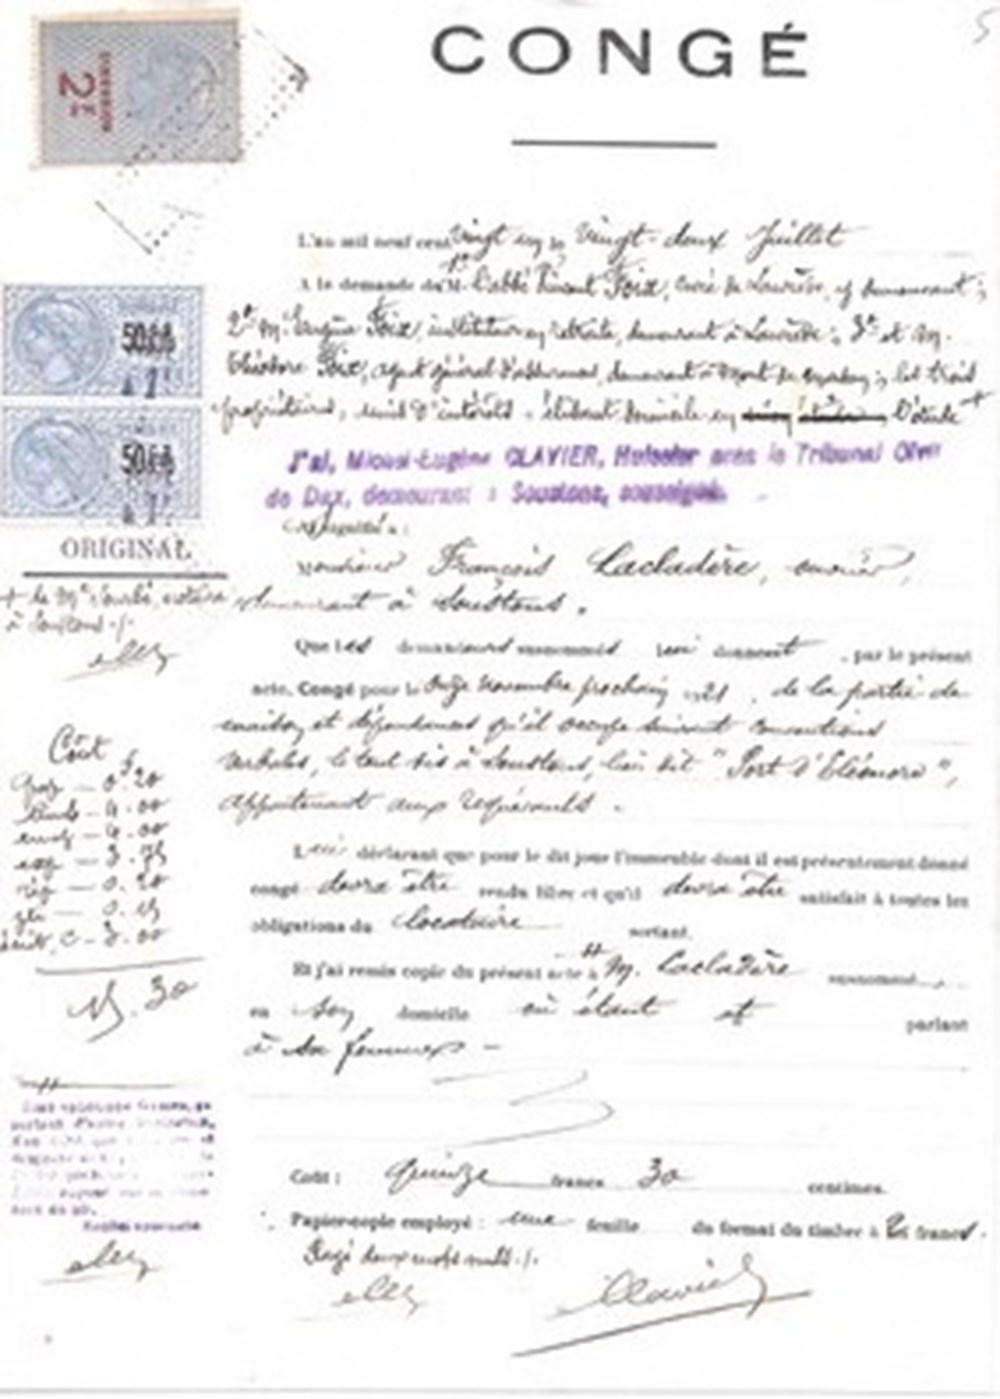 CONGÉ
5
2F
DIMENSION
L'an mil neuf cent vingt un le vingt-deux Juillet
A la demande de 1° M. l'abbé Vincent Foix, curé de Laurède, y demeurant ;
2° M. Eugène Foix, instituteur en retraite, demeurant à Laurède ; 3° et M.
Théodore Foix, agent général d'assurances, demeurant à Mont de Marsan ; les trois
propriétaires, unis d'intérêts - élisant domicile en l'étude +
J'ai, Eugène CLAVIER, Huissier près le Tribunal Civil
de Dax, demeurant à Soustons, soussigné.
ORIGINAL
Monsieur François Lacladère, ouvrier,
demeurant à Soustons.
+ de Me notaire
à Soustons ./.
Que les demandeurs susnommés lui donnent, par le présent
acte, Congé pour le onze novembre prochain 1921, de la partie de
maison et dépendances qu'il occupe suivant conventions
verbales, le tout sis à Soustons, lieu dit "Port d'Eléonore",
appartenant aux requérants.
Coût
0.20
4.00
4.00
3.75
0.20
0.15
3.00
15.30
Lui déclarant que pour le dit jour l'immeuble dont il est présentement donné
congé devra être rendu libre et qu'il devra être satisfait à toutes les
obligations du locataire sortant.
Et j'ai remis copie du présent acte à M. Lacladère susnommé
en son domicile où étant et parlant
à sa femme -
Coût : quinze francs 30 centimes.
Papier-copie employé : une feuille du format du timbre à 2 francs.
Rayé deux mots nuls ./.
Clavier